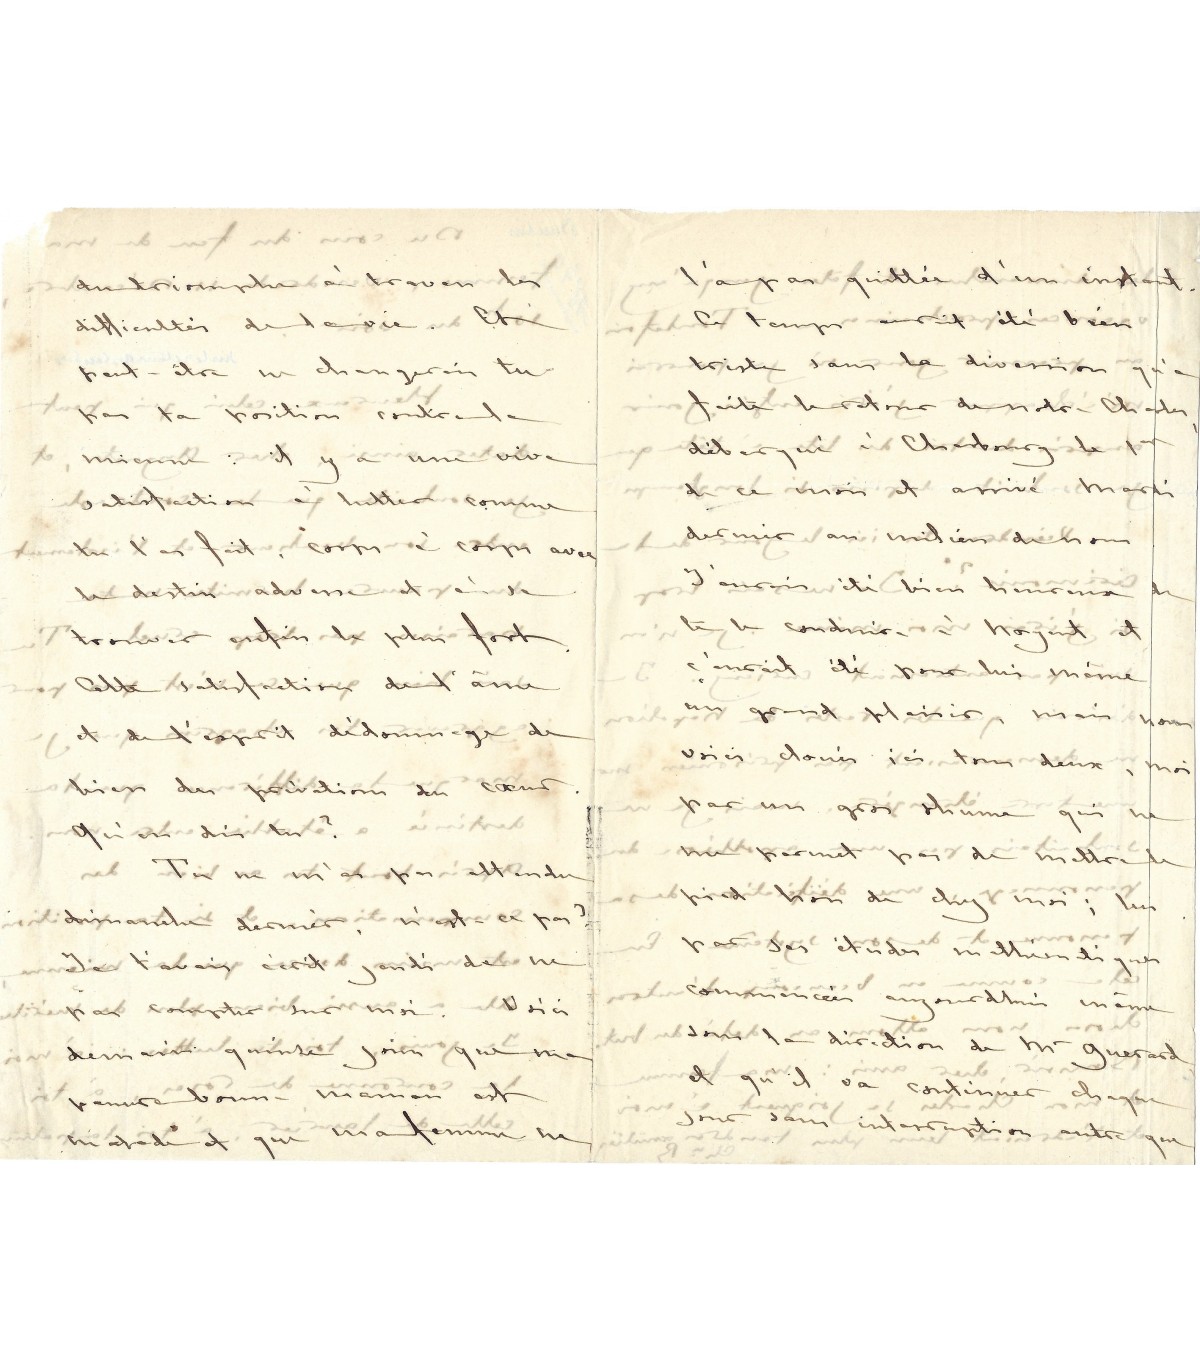 du triomphe à travers les
difficultés de la vie. Et
peut-être ne changerais tu
pas ta position contre la
mienne : il y a une vive
satisfaction à lutter comme
tu l'as fait, corps à corps avec
le destin adverse et à se
trouver enfin le plus fort.
Cette satisfaction de l'âme
et de l'esprit dédommage de
bien des privations du cœur.
Qu'en dis tu?
Tu ne m'as pas attendu
dimanche dernier, n'est-ce pas?
Je t'avais écrit jeudi de ne
pas compter sur moi. Voici
demain quinze jours que ma
pauvre bonne maman est
malade et que ma femme ne
l'a pas quittée d'un instant.
Ce temps aurait été bien
triste sans la diversion qu'a
faite le retour de notre Charles,
débarqué à Cherbourg le 1er
de ce mois et arrivé mardi
dernier au milieu de nous
J'aurais été bien heureux de
te le conduire à Nogent et
ç'aurait été pour lui même
un grand plaisir, mais nous
voici cloués ici tous deux, moi
par un gros rhume qui ne
me permet pas de mettre le
pied hors de chez moi; lui
par ses études
commencées aujourdhui même
sous la direction de Mr Guerard
et qu'il va continuer chaque
jour sans interruption autre que